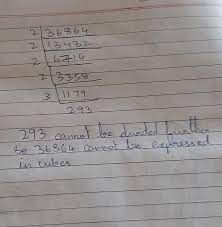 2 | 36864
2 | 13432
2 | 6716
2 | 3358
3 | 1179
293
293 cannot be divided further
so 36864 cannot be expressed
in cubes